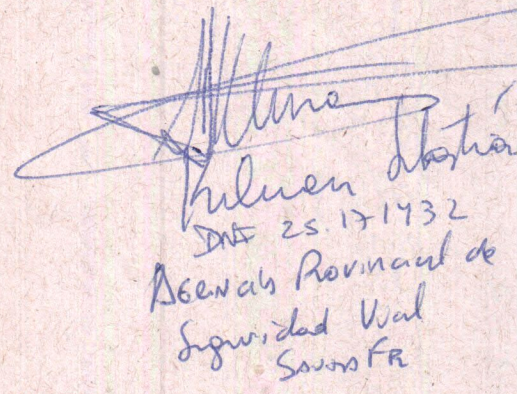 Kulman Sebastián
DNI 25.171432
Agencia Provincial de
Seguridad Vial
Santa Fe